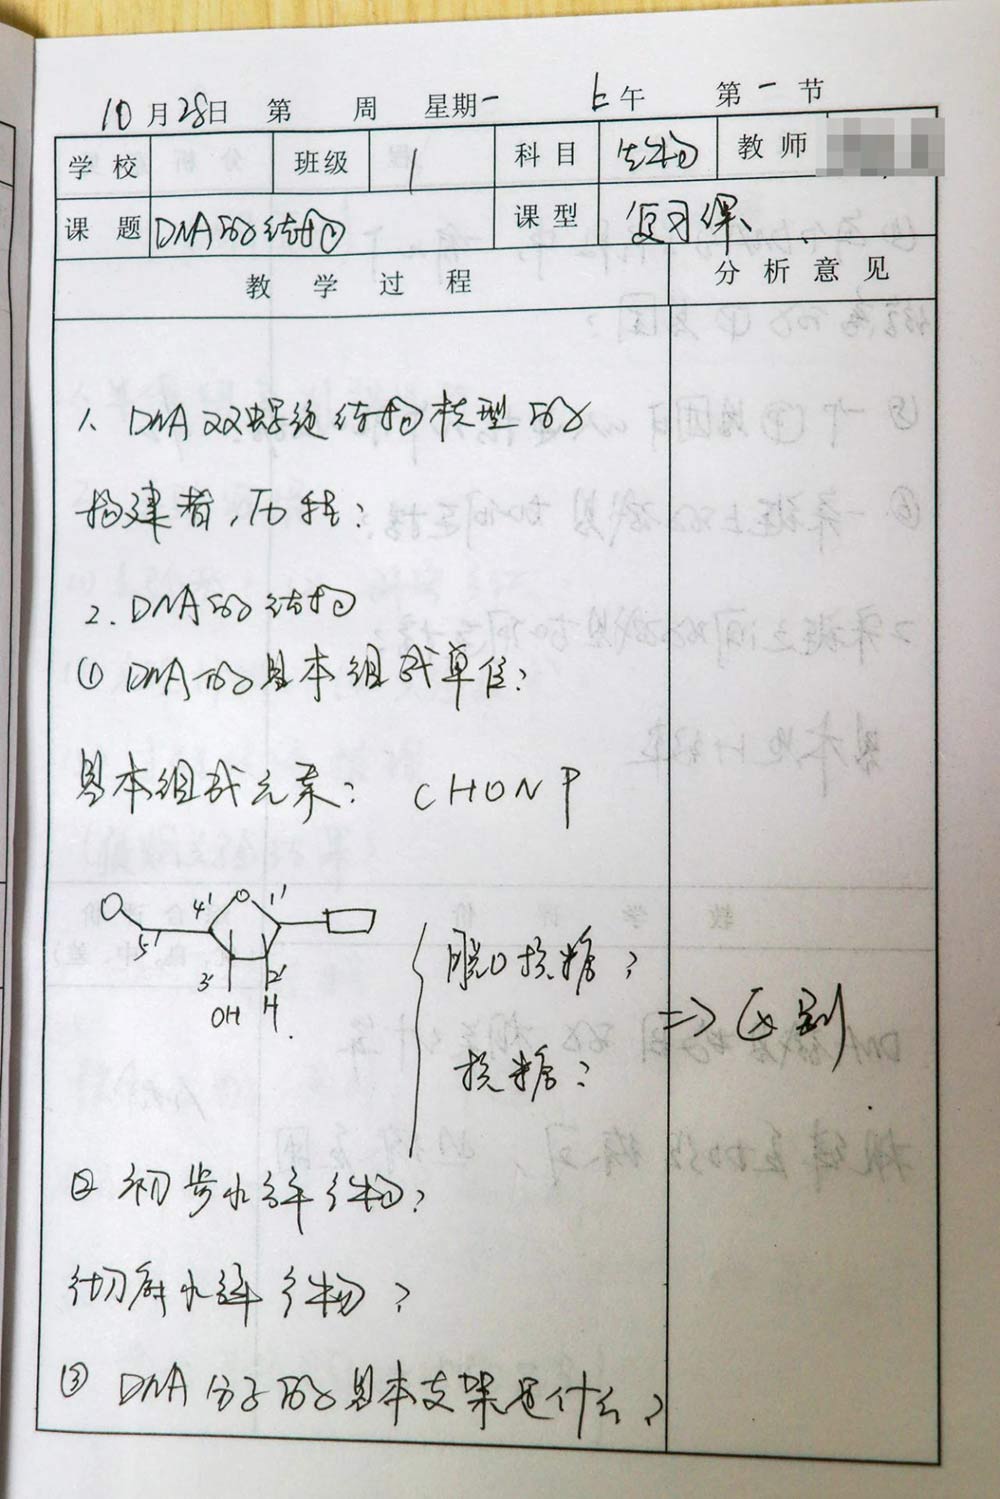 10月28日 第 周 星期一 上午 第一节
学校 班级 1 科目 生物 教师
课题 DNA的结构 课型 复习课、
教学过程 分析意见
1. DNA双螺旋结构模型的
构建者,历程?
2. DNA的结构
① DNA的基本组成单位?
基本组成元素? CHONP
O 1'
4'
5'
3' 2'
OH H
脱O核糖?
核糖?
=> 区别
② 初步水解产物?
彻底水解产物?
③ DNA分子的基本支架是什么?